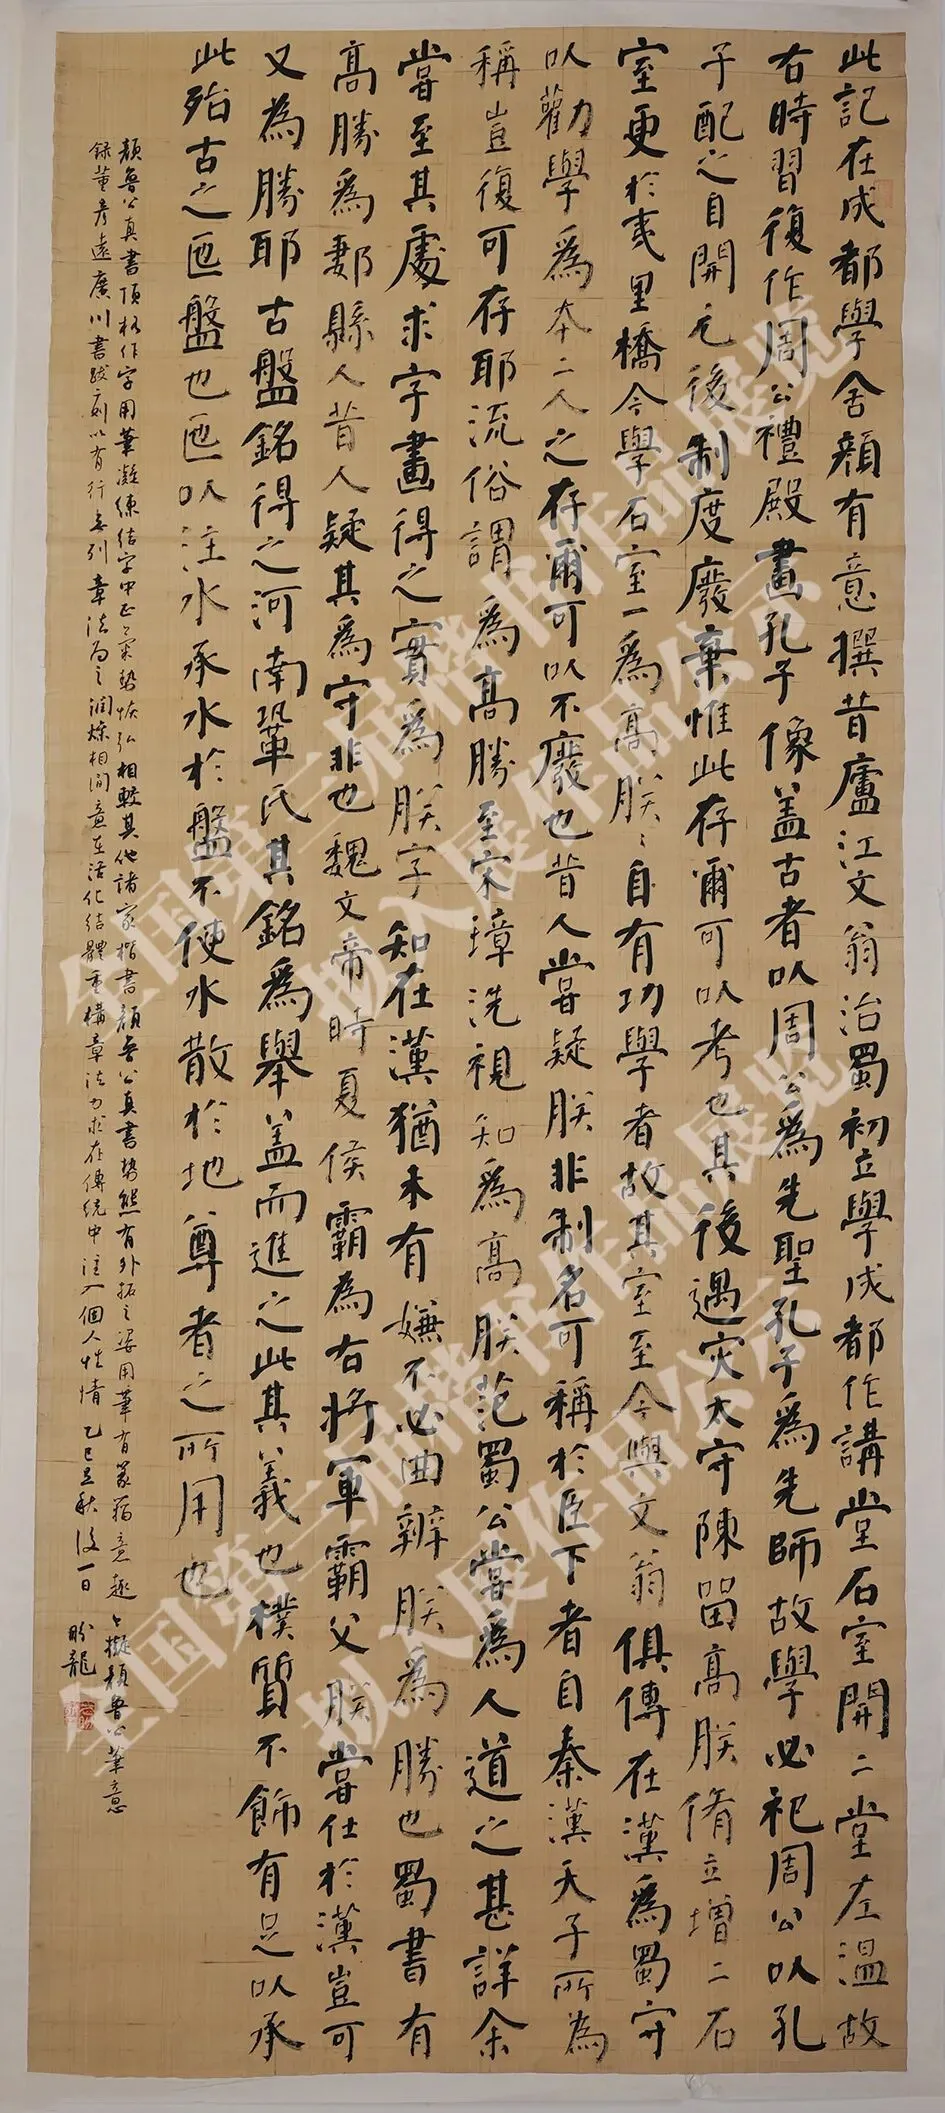 此記在成都學舍顏有意撰昔廬江文翁治蜀初立學成都作講堂石室開二堂左溫故
右時習復作周公禮殿畫孔子像蓋古者以周公為先聖孔子為先師故學必祀周公以孔
子配之自開元後制度廢棄惟此存爾可以考也其後遇灾太守陳留高朕脩立增二石
室更於夷里橋今學石室一為高朕〻自有功學者故其室至今與文翁俱傳在漢為蜀守
以勸學為本二人之存爾可以不廢也昔人嘗疑朕非制名可稱於臣下者自秦漢天子所為
稱豈復可存耶流俗謂為高勝至宋璋洗視知為高朕范蜀公嘗為人道之甚詳余
嘗至其處求字畫得之實為朕字知在漢猶未有嫌不必曲辨朕為勝也蜀書有
高勝為郪縣人昔人疑其為守非也魏文帝時夏侯霸為右將軍霸父朕嘗仕於漢豈可
又為勝耶古盤銘得之河南鞏氏其銘為舉蓋而進之此其義也樸質不飾有足以承
此殆古之匜盤也匜以注水承水於盤不使水散於地尊者之所用也
顏魯公真書頂格作字用筆凝練結字中正氣勢恢弘相較其他諸家楷書顏魯公真書勢態有外拓之姿用筆有篆籀意趣今擬顏魯公筆意
錄董彥遠廣川書跋刻以有行無列章法為之潤燥相間意在活化結體重構章法力求在傳統中注入個人性情乙巳立秋後一日 盼龍
全国第三届楷书作品展览
拟入展作品公示
全国第三届楷书作品展览
拟入展作品公示